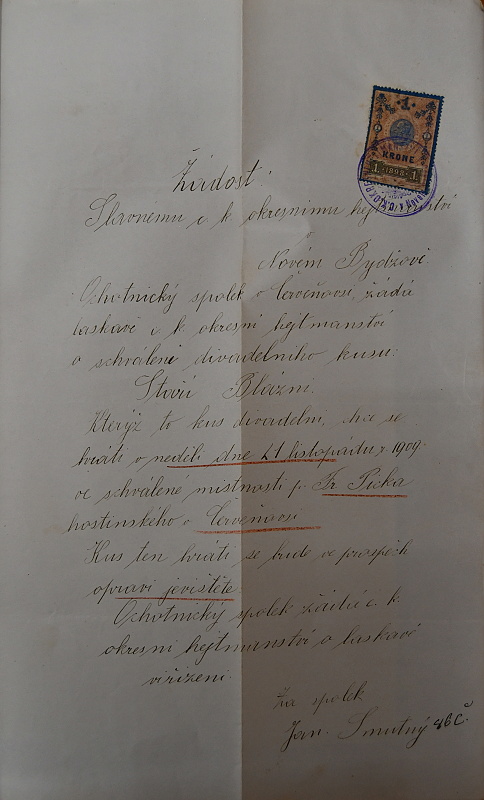 1
KRONE
1 1898 1
Žádost!
Slavnemu c. k. okresnimu hejtmanství
v
Novém Bydžově.
Ochotnický spolek v Červeňovsi, žádá
laskavě c. k. okresní hejtmanství
o schválené divadelního kusu:
Staří Blázni.
Kterýž to kus divadelní, chce se
hráti v neděli dne 21 listopadu 1909.
ve schválené místnosti p. Fr. Picka
hostinského v Červeňovsi
Kus ten hráti se bude ve prospěch
opravi jeviště
Ochotnický spolek žádá c. k.
okresni hejtmanství o laskavé
viřízeni.
Za spolek
Jan. Smutný 46 Č.